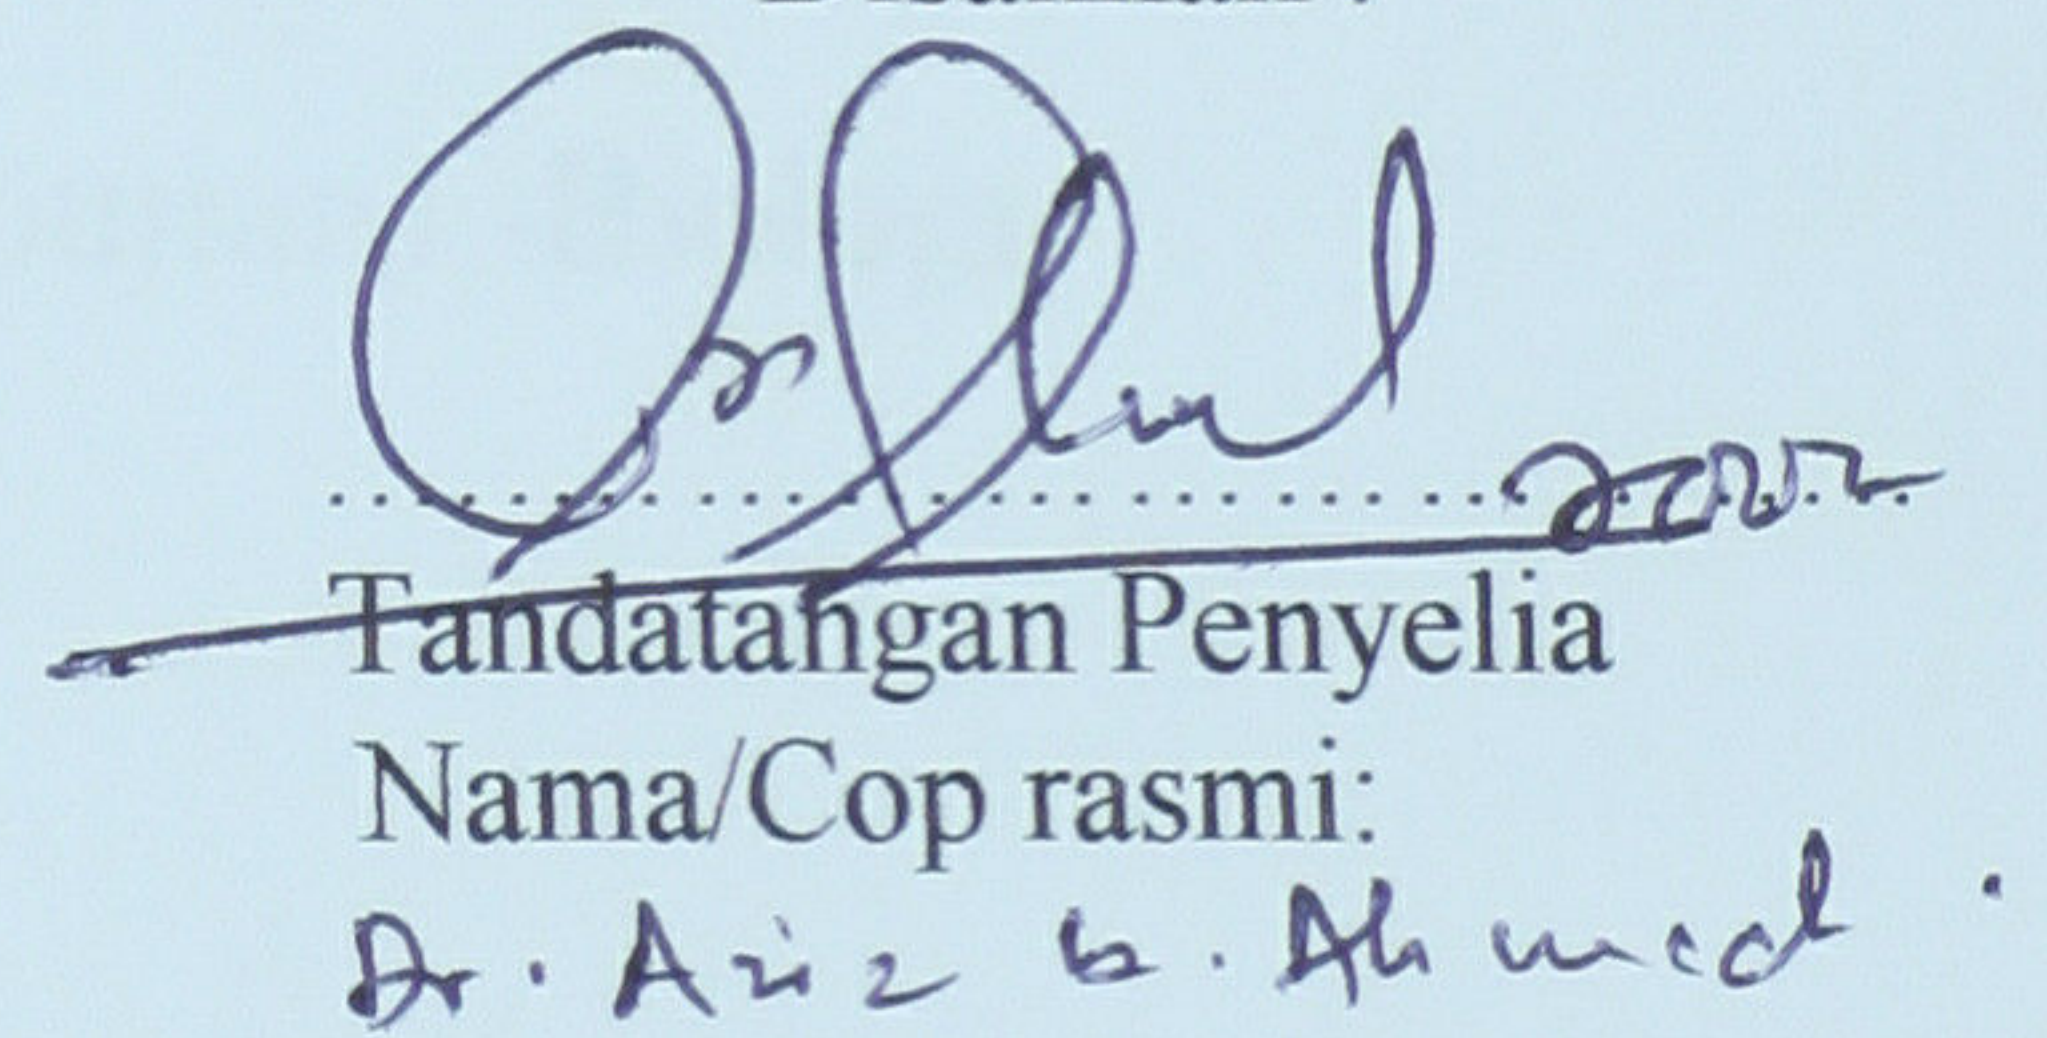 2002
Tandatangan Penyelia
Nama/Cop rasmi:
Dr. Aziz b. Ahmad.